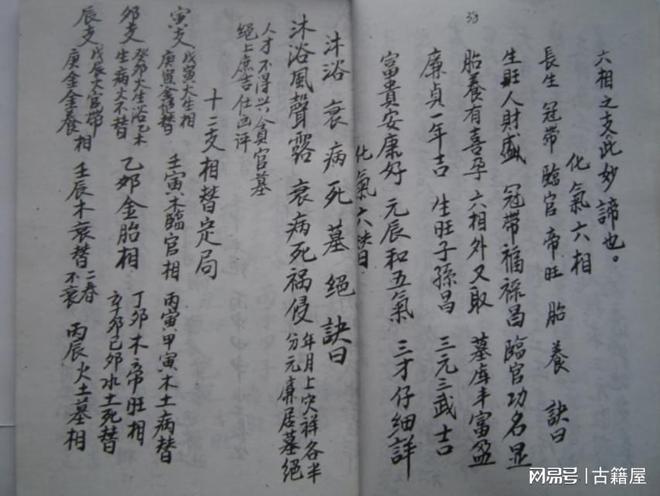 39
六相之支此妙諦也。
化氣六相
長生 冠帶 臨官 帝旺 胎 養 訣曰
生旺人財盛 冠帶福祿昌 臨官功名显
胎養有喜孕 六相外又取 墓库丰富盈
廉貞一年吉 生旺子孫昌 三元三武士口
富貴安康好 元辰和五氣 三才仔細詳
化氣六
沐浴 衰 病 死 墓 絕 訣曰
沐浴風聲露 衰病死祸侵 年月上灾祥各半
分元廉居墓絕
人才不得兴 貪官墓
絕上庶吉仕凶评
十二支相替定局
寅支 戊寅火生相
庚寅金絕替 壬寅木臨官相 丙寅甲寅木土病替
卯支 癸卯火生浴乙木
生病火不替 乙卯金胎相 丁卯木帝旺相
辛卯己卯水土死替
辰支 戊辰火官帶
庚金金養 相 壬辰木衰替 二春
不衰 丙辰火土墓相
网易号 | 古籍屋